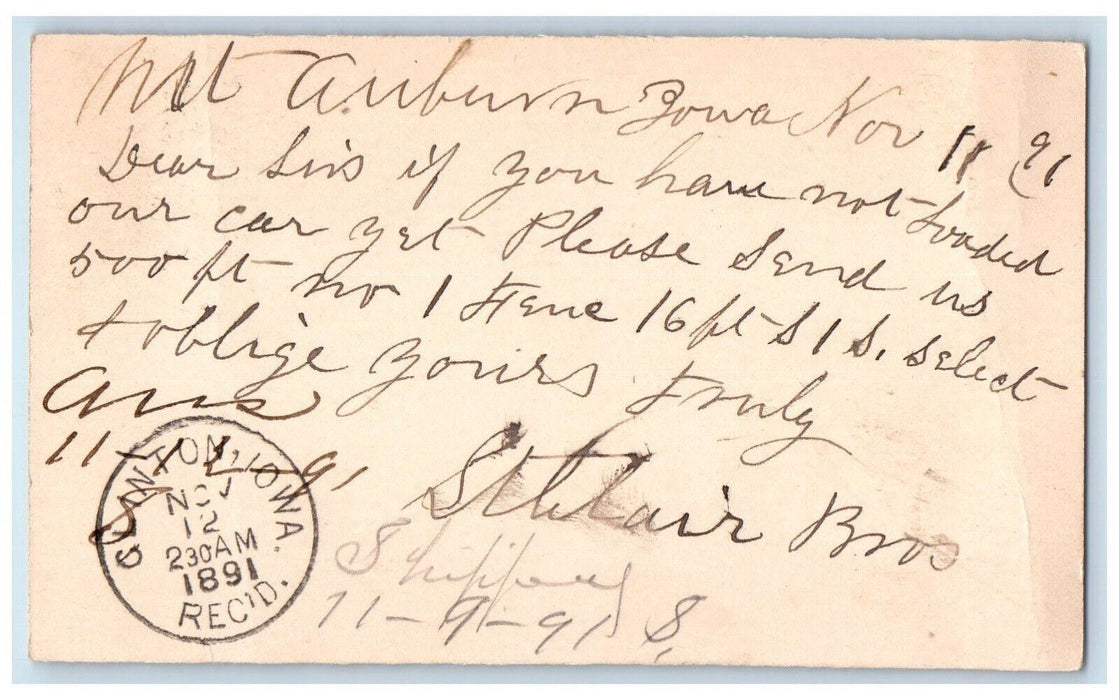 Mt Auburn Iowa Nov 11 91
Dear Sirs if you have not Loaded
our car yet Please Send us
500 ft no 1 Fenc 16 ft S 1 S. select
& oblige yours truly
St Clair Bros
Ans
11-12-91
CLINTON, IOWA.
NOV
12
230AM
1891
REC'D.
Shipped
11-9-91 S.